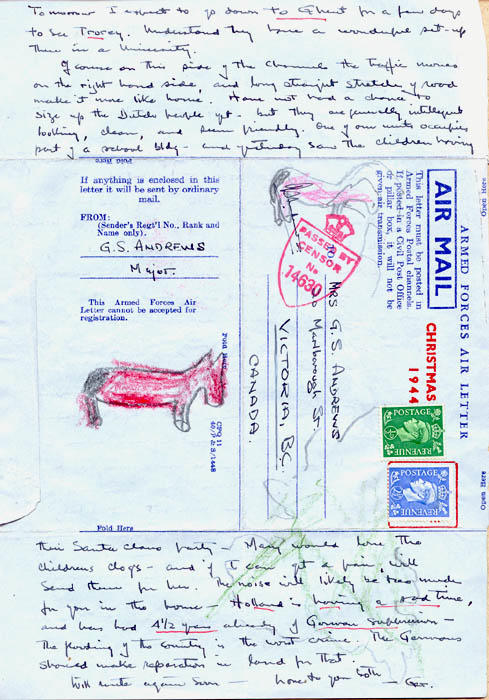 Tomorrow I expect to go down to Ghent for a few days
to see Tracey. Understand they have a wonderful set-up
there in a University.
Of course on this side of the Channel the traffic moves
on the right hand side, and long straight stretches of road
make it more like home. Have not had a chance to
size up the Dutch people yet - but they are generally intelligent
looking, clean, and seem friendly. One of our units occupies
part of a school bldg - and yesterday saw the children having
Fold Here
If anything is enclosed in this
letter it will be sent by ordinary
mail.
FROM:
(Sender's Regt'l No., Rank and
Name only).
G.S. ANDREWS
Major.
This Armed Forces Air
Letter cannot be accepted for
registration.
Fold Here
CPQ 11
40/P & S/1448
Fold Here
Open Here
ARMED FORCES AIR LETTER
AIR MAIL
This letter must be posted in
Armed Forces Postal channels.
If posted in a Civil Post Office
or pillar box, it will not be
given air transmission.
CHRISTMAS
1944
PASSED BY
CENSOR
No
14630
MRS G.S. ANDREWS
Marlborough St.
VICTORIA, BC
CANADA.
POSTAGE
REVENUE
POSTAGE
REVENUE
Open Here
their Santa Claus party - Many would love the
childrens clogs - and if I can get a pair, will
send them for her. The noise will likely be too much
for you in the home - Holland is having a sad time,
and has had 4½ years already of German
The flooding of the country is the worst crime. The Germans
should make reparation in land for that.
Will write again soon - love to you both - Ger.